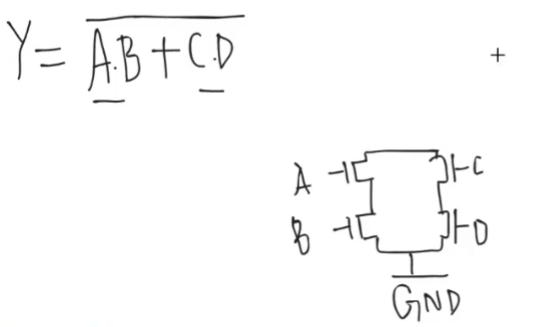 Y = \overline{A.B + C.D}
A C
B D
GND